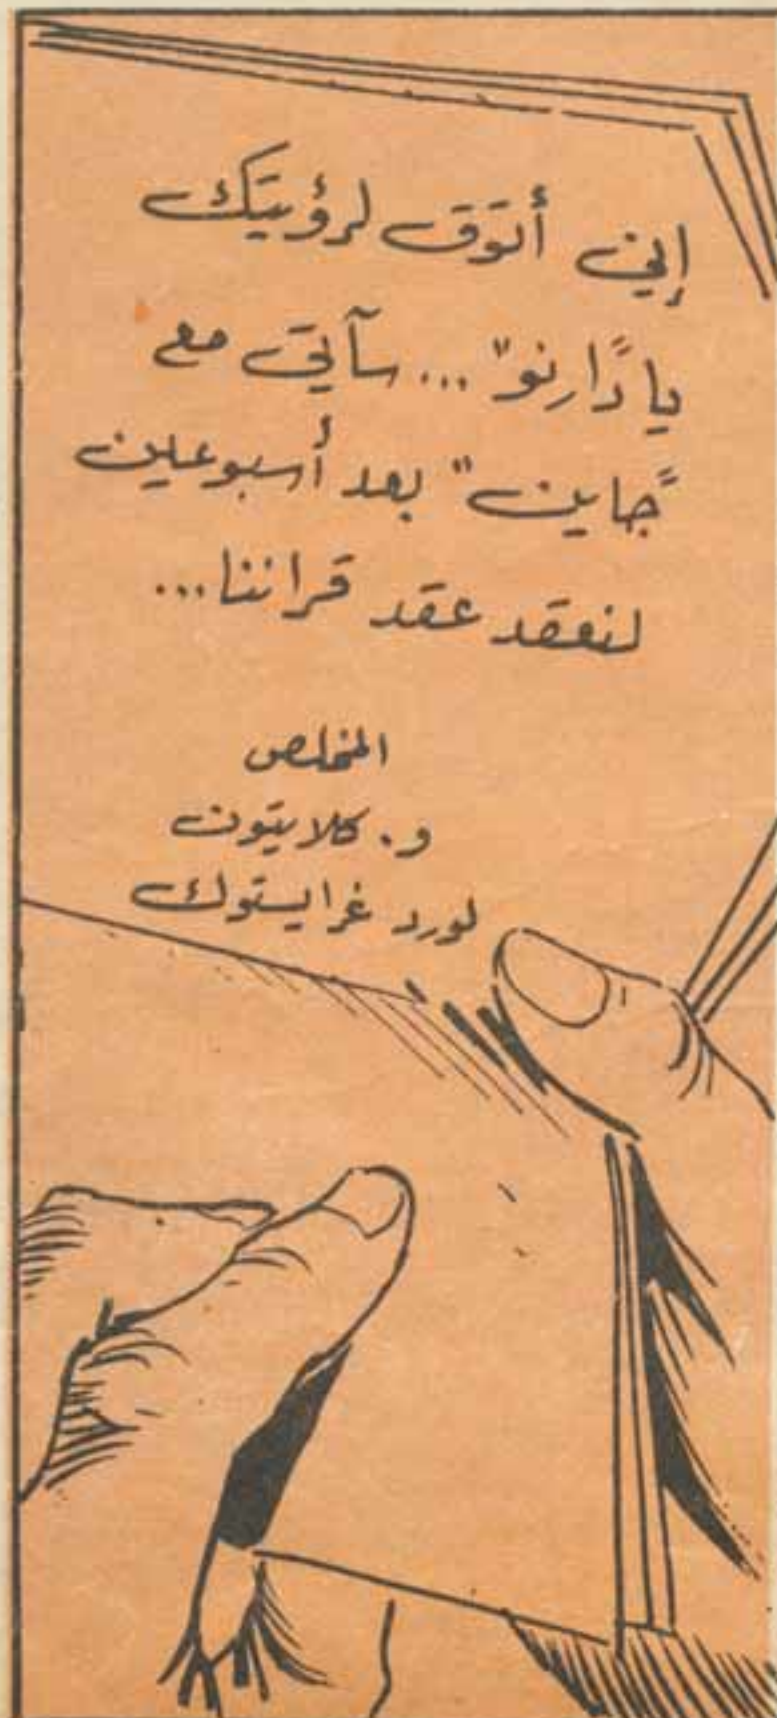 إني أتوق لرؤيتك
يا "دارنو"... سآتي مع
"جاين" بعد أسبوعين
لنعقد عقد قراننا...
المخلص
و. كلايتون
لورد غرايستوك